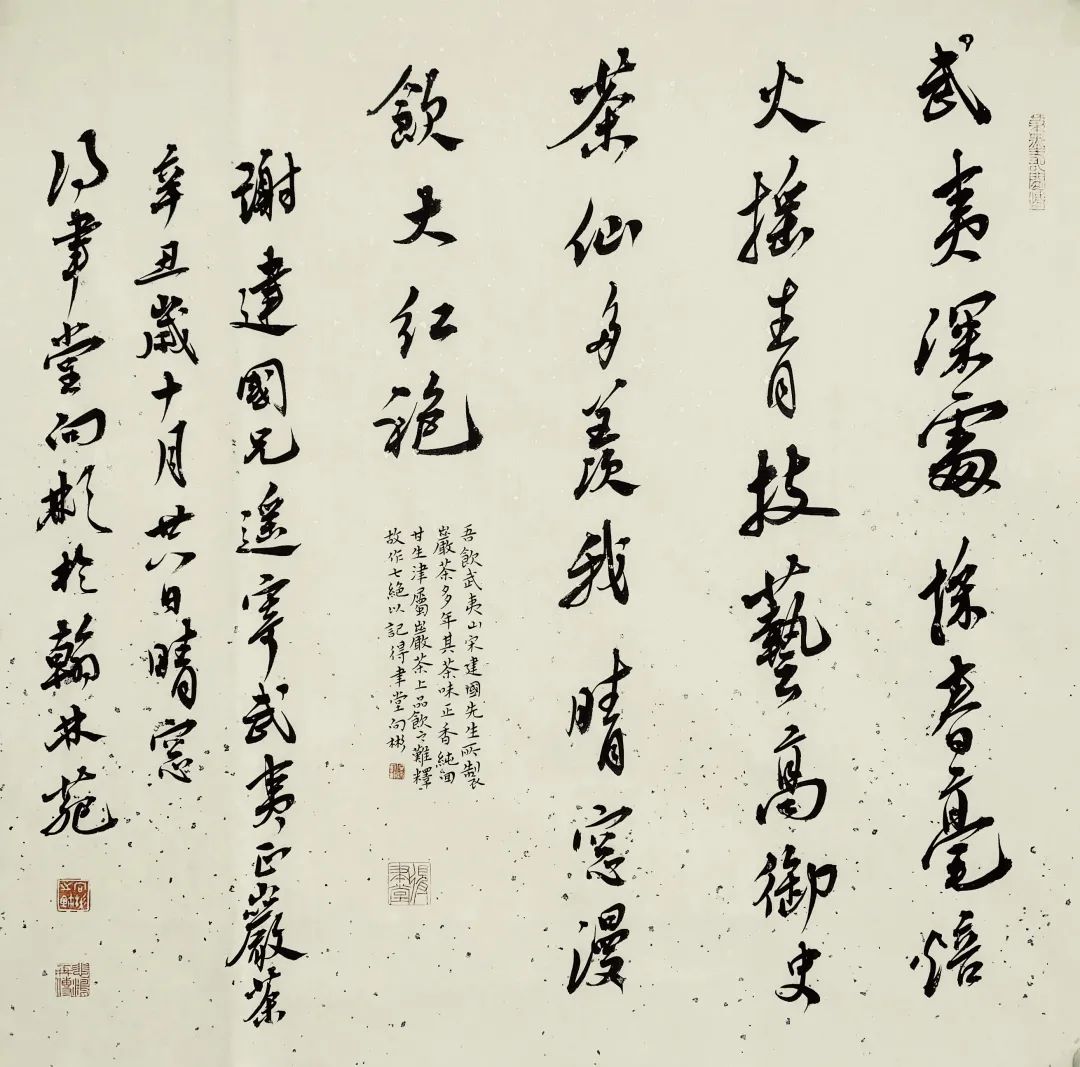 武夷深處採春毫焙
火搖青技藝高御史
茶仙多羨我晴窓漫
飲大紅袍
吾飲武夷山宋建國先生所製
巖茶多年其茶味正香純迴
甘生津屬巖茶上品飲之難釋
故作七絕以記得聿堂向彬
謝建國兄遙寄武夷正巖茶
辛丑歲十月廿八日晴窓
得聿堂向彬於翰林苑